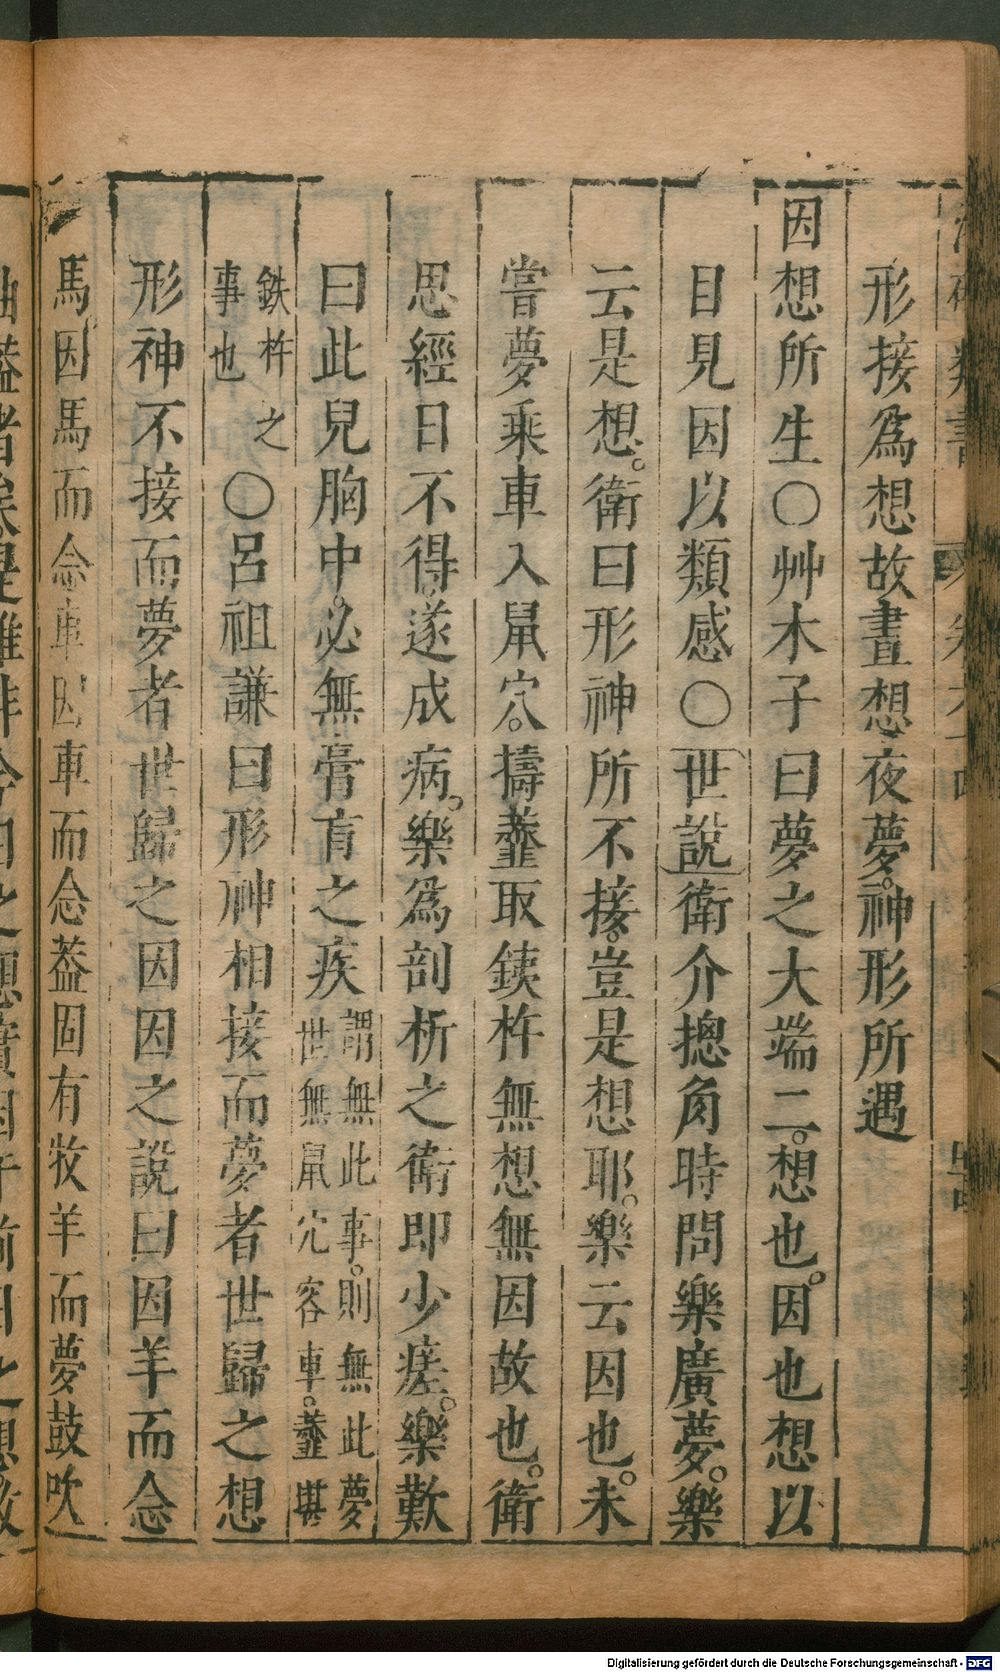 形接爲想故晝想夜夢。神形所遇
因想所生〇艸木子曰夢之大端二。想也。因也想以
目見因以類感〇世說衛介摠角時問樂廣夢。樂
云是想。衛曰形神所不接。豈是想耶。樂云因也。未
嘗夢乘車入鼠穴。擣虀取鋨杵無想無因故也。衛
思經日不得。遂成病。樂爲剖析之衛即少瘥。樂歎
曰此兒胸中。必無膏肓之疾謂無此事。則無此夢世無鼠穴容車。虀堪
鉄杵之事也〇呂祖謙曰形神相接而夢者世歸之想
形神不接而夢者世歸之因因之說曰因羊而念
馬因馬而念車因車而念葢固有牧羊而夢鼓吹
Digitalisierung gefördert durch die Deutsche Forschungsgemeinschaft - DFG